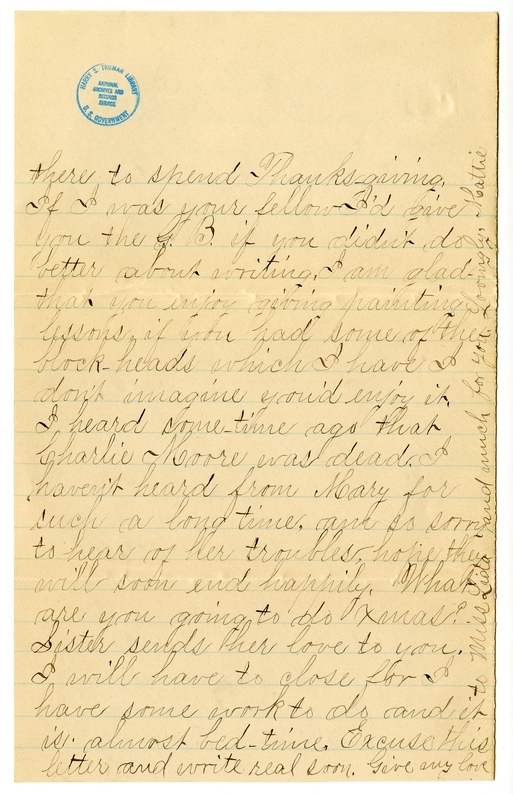 HARRY S. TRUMAN LIBRARY
NATIONAL
ARCHIVES AND
RECORDS
SERVICE
U. S. GOVERNMENT
there to spend Thanks-giving.
If I was your fellow I'd give
you the G. B. if you didn't do
better about writing. I am glad
that you enjoy giving painting
lessons, if you had some of the
block-heads which I have I
don't imagine you'd enjoy it.
I heard some-time ago that
Charlie Moore was dead. I
haven't heard from Mary for
such a long time. am so sorry
to hear of her troubles, hope they
will soon end happily. What
are you going to do Xmas?
Sister sends her love to you.
I will have to close for I
have some work to do and it
is almost bed-time. Excuse this
letter and write real soon. Give my love
to Miss Lida and much for you. Lovingly. Mattie